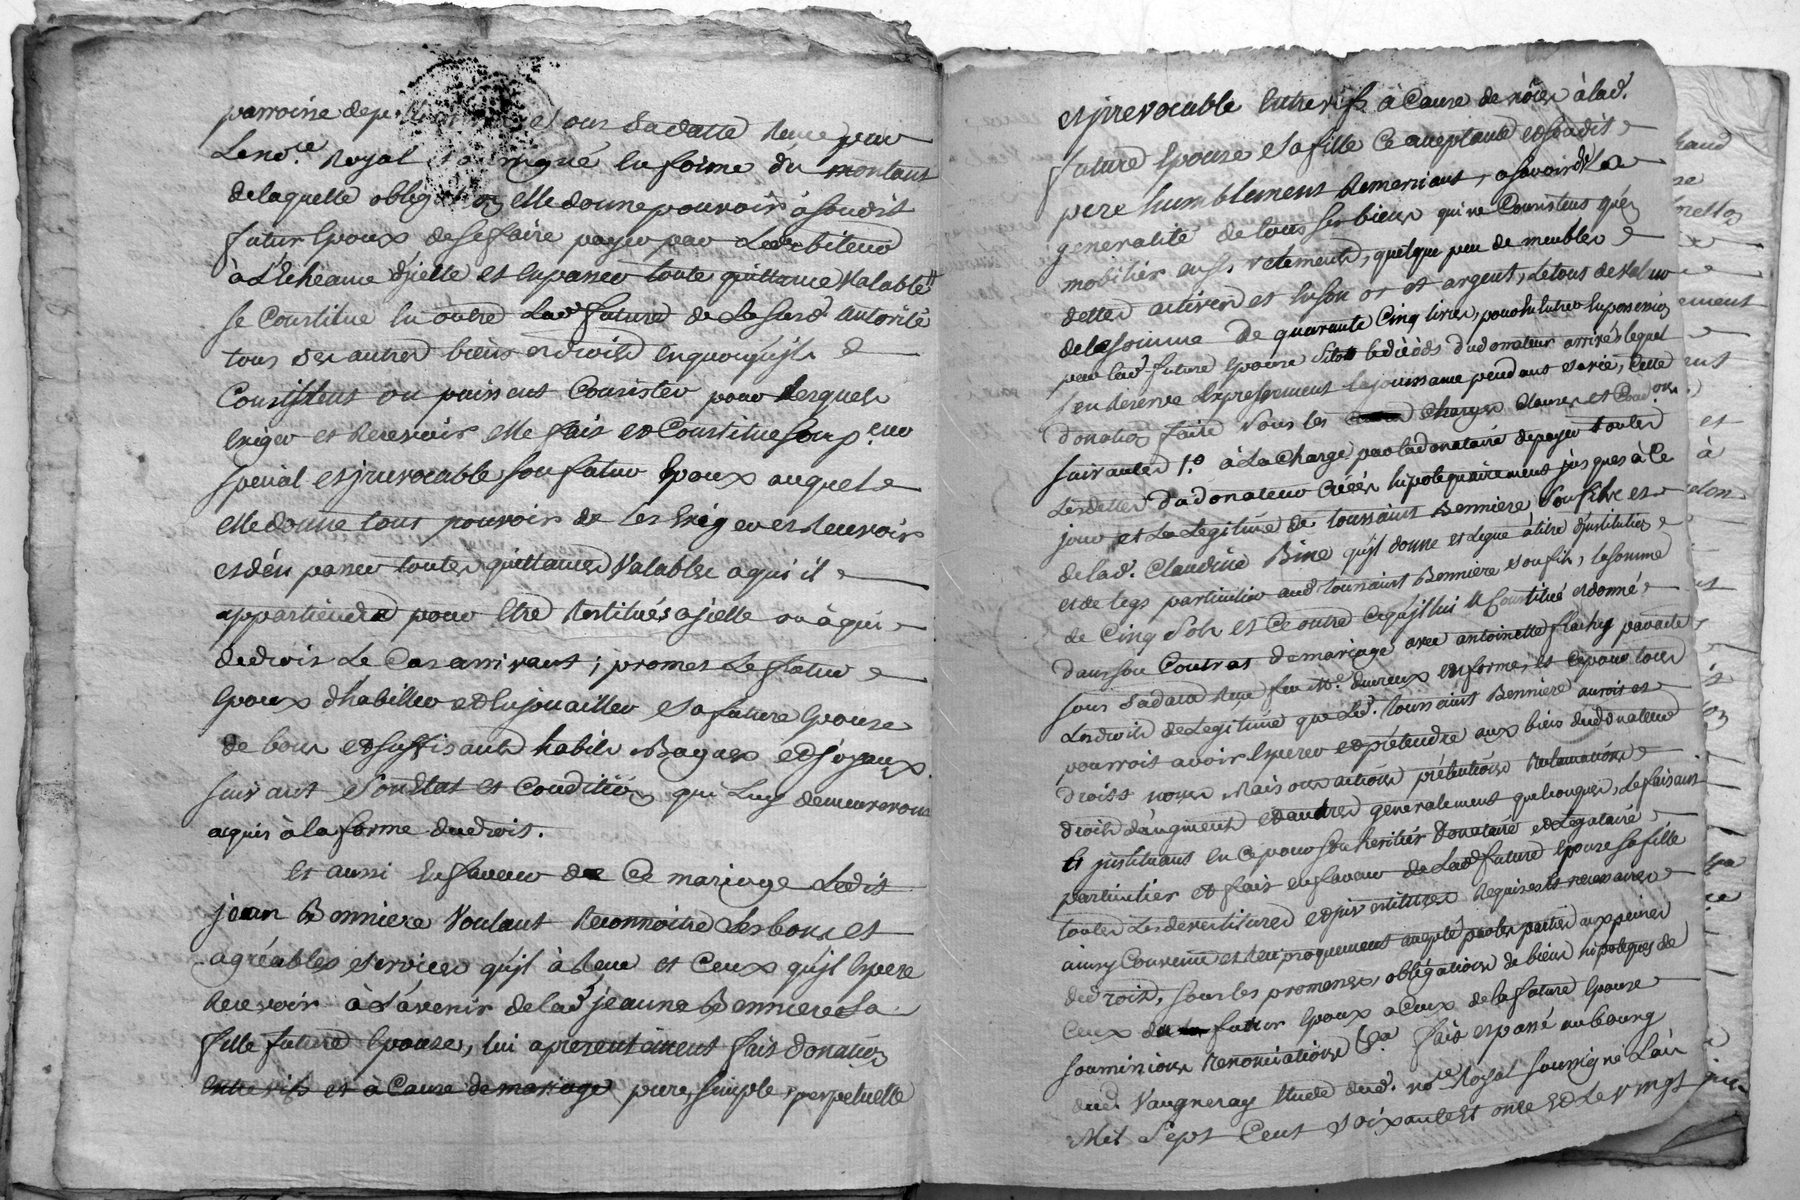 parroisse de et sous sa datte reçue par
Le no.re Royal soussigné en forme du montant
de laquelle obligation elle donne pouvoir à sondit
futur Epoux de se faire payer par Le debiteur
à L'Echeance d'jcelle et en passer toute quittance Valable //
se Constitue en outre Lad. future de La susd. autorité
tous ses autres biens et droits en quoiqu'jls
Consistent ou puissent Consister pour lesquels
Exiger et recevoir elle fait et Constitue son p.eur
special et jrrevocable son futur Epoux auquel
elle donne tout pouvoir de les Exiger et recevoir
et d'en passer toutes quittances Valables a qui il
appartiendra pour Etre restitués a jcelle ou à qui
de droit Le Cas arrivant ; promet Le futur
Epoux d'habiller et Enjouailler sa future Epouse
de bons et suffisants habits Bagues et Joyaux
suivant son Etat et Condition qui Luy demeureront
acquis à la forme du droit.
Et aussi En faveur de Ce mariage Ledit
jean Bonniere Voulant reconnoitre Les bons et
agréables services qu'jl à reçue et Ceux qu'jl Espere
recevoir à L'avenir de lad. jeanne Bonniere sa
fille future Epouse, lui a presentement fait donation
entre vifs et à Cause de mariage pure, simple, perpetuelle
et jrrevocable Entre vifs à Cause de nôces à lad.
future Epouse sa fille Ce acceptante et sondit
pere humblement remerciant, a savoir de la
generalité de tous ses biens qui ne Consistent qu'en
mobilier en ses vetements, quelque peu de meubles
dettes actives et en son or et argent, Le tout de valeur
de la somme De quarante Cinq livres, pour en Entrer en possession
par lad. future Epouse sitot le décéds dud donateur arrivé, lequel
s'en reserve Expressement la jouissance pendant sa vie, Cette
donation faite sous les charges clauses et Cond.ons
suivantes 1.o à La Charge par la donataire de payer toutes
Les dettes du donateur Créées hipotequairement jusques à Ce
jour et La Legitime de toussaint Bonniere son fils et
de lad. Claudine Bine qu'jl donne et Legue à titre d'jnstitution
et de legs particulier aud toussaint Bonniere son fils, la somme
de Cinq Sols et Ce outre Ce qu'jl lui a Constitué et donné
dans son Contrat de mariage avec antoinette flachy par acte
sous sa data reçu feu M.e en forme, et Ce pour tous
Les droits de Legitime que led. toussaint Bonniere auroit et
pourroit avoir Esperer et prétendre aux biens dud donateur
droits noms raisons actions prétentions reclamations
droits d'augment et autres generalement quelconques, Le faisant
et jnstituant en Ce pour son heritier donataire et Legataire
particulier et fait en faveur de Lad future Epouse sa fille
toutes Les devestitures et jnvestitures requises et necessaires
ainsy Convenu et reciproquement accepté par les parties aux peines
de droit, sous les promesses, obligations de biens hipoteques de
Ceux du futur Epoux a Ceux de la future Epouse
soumissions renonciations &a fait et passé au bourg
dud. Vaugneray Etude dud. no.re Royal soussigné L'an
Mil Sept Cent soixante et onze et Le vingt